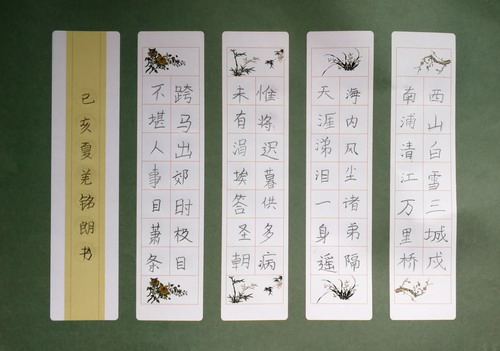 西山白雪三城戍
南浦清江万里桥
海内风尘诸弟隔
天涯涕泪一身遥
惟将迟暮供多病
未有涓埃答圣朝
跨马出郊时极目
不堪人事日萧条
己亥夏羌铭朗书